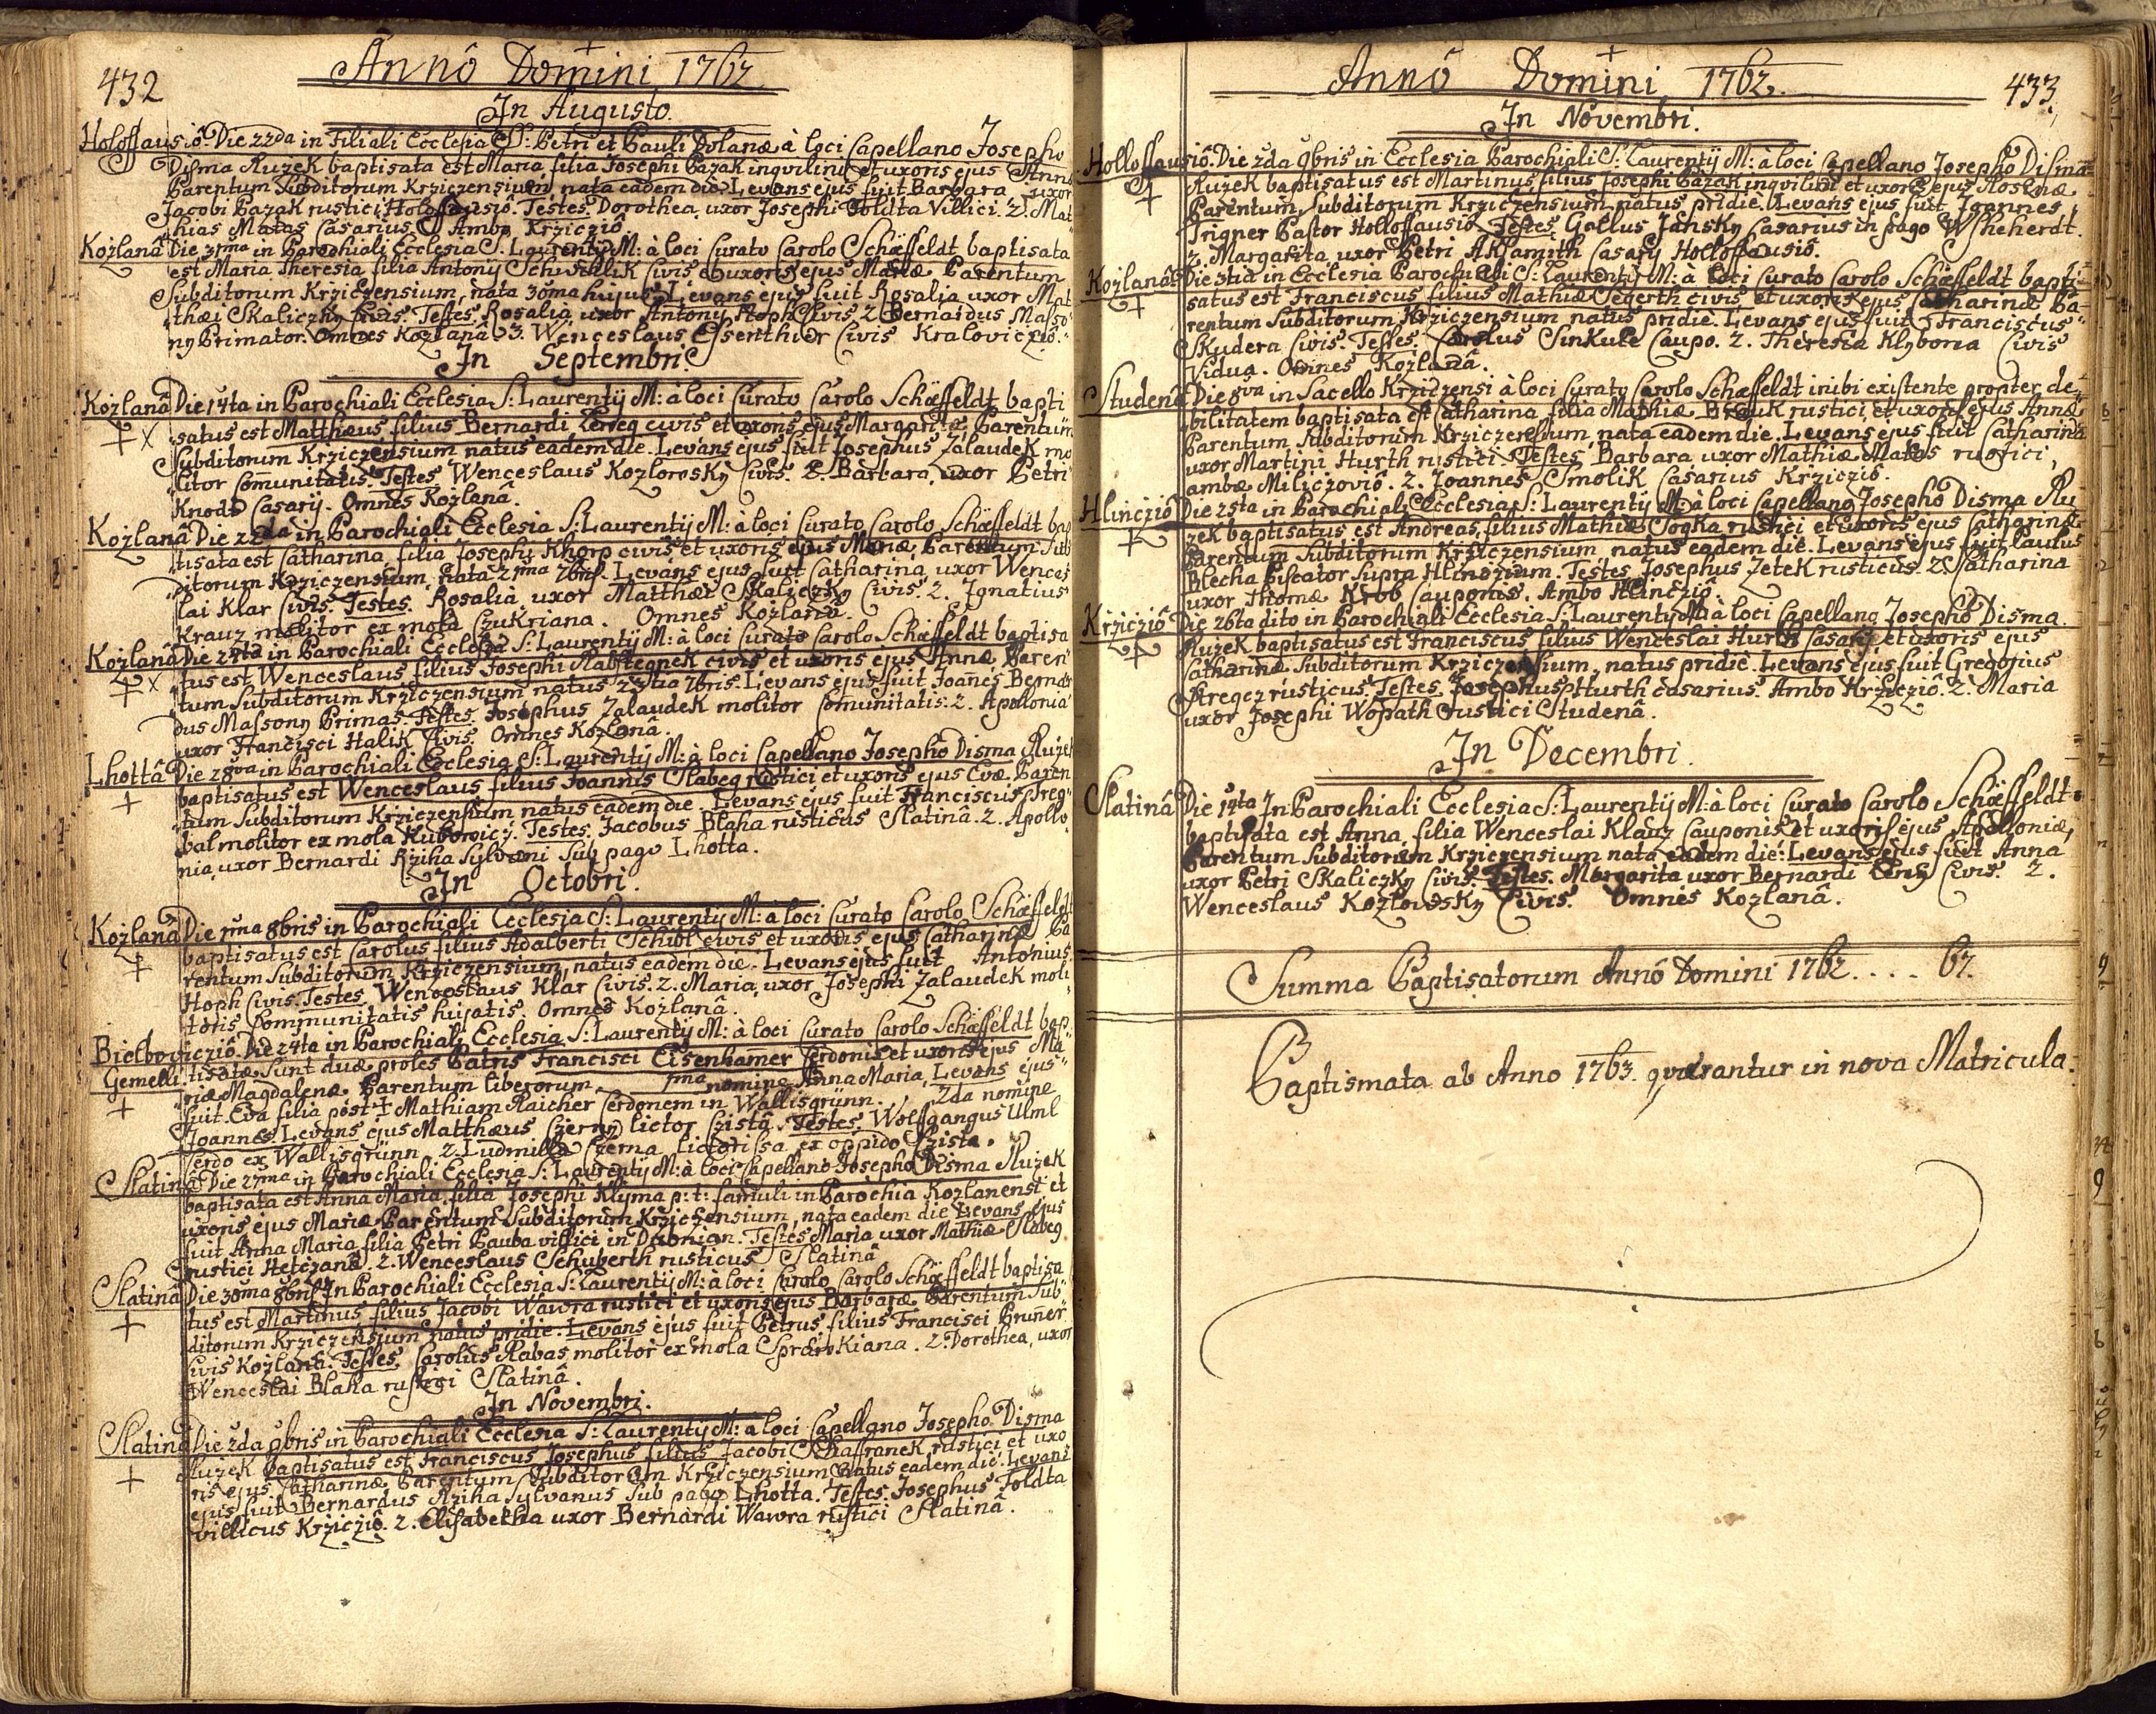 432
Annô Domini 1762.
In Augusto.
Holoffausiô. Die 22da in Filiali Ecclesia SS: Petri et Pauli Dolanæ à loci Capellano Josepho
Disma Ruzek baptisata est Maria filia Josephi Pazak inqvilini et uxoris ejus Annæ
Parentum Subditorum Krziczensium, nata eadem die. Levans ejus fuit Barbara uxor
Jacobi Pazak rustici Holoffausiô. Testes. Dorothea uxor Josephi Toldta Villici. 2. Mat
hias Matas Casarius. Ambo Krziczió.
Kozlanâ Die 31ma in Parochiali Ecclesia S: Laurentij M: à loci Curato Carolo Schæffeldt baptisata
est Maria Theresia filia Antonij Civis et uxoris ejus Mariæ Parentum
Subditorum Krziczensium, nata 30ma hujus. Levans ejus fuit Rosalia uxor Mat
thæi Skaliczky Civis. Testes. Rosalia uxor Antonij Hoph Civis. 2. Bernardus Masso
ny Primator. Omnes Kozlanâ. 3. Wenceslaus Essenthier Civis Kraloviczió.
In Septembri.
Kozlanâ Die 14ta in Parochiali Ecclesia S: Laurentij M: à loci Curato Carolo Schæffeldt bapti
satus est Matthæus filius Bernardi civis et uxoris ejus Margaritæ Parentum
Subditorum Krziczensium natus eadem die. Levans ejus fuit Josephus Zalaudek mo
litor Comunitatis. Testes. Wenceslaus Kozlowsky Civis. 2. Barbara uxor Petri
Knodt Casarij. Omnes Kozlanâ.
Kozlanâ Die 22da in Parochiali Ecclesia S: Laurentij M: à loci Curato Carolo Schæffeldt bap
tisata est Catharina filia Josephi Khorp civis et uxoris ejus Mariæ, Parentum Sub
ditorum Krziczensium, nata 21ma 7bris. Levans ejus fuit Catharina uxor Wences
lai Klar Civis. Testes. Rosalia uxor Matthæi Skaliczky Civis. 2. Ignatius
Krauz molitor ex mola Czukriana. Omnes Kozlanâ.
Kozlanâ Die 24ta in Parochiali Ecclesia S: Laurentij M: à loci Curato Carolo Schæffeldt baptisa
tus est Wenceslaus filius Josephi Rabstegnek civis et uxoris ejus Annæ, Paren
tum Subditorum Krziczensium natus 23tia 7bris. Levans ejus fuit Joañes Bernar
dus Massony Primas. Testes. Josephus Zalaudek molitor Comunitatis. 2. Apollonia
uxor Francisci Halik Civis. Omnes Kozlanâ.
Lhottâ Die 28va in Parochiali Ecclesia S: Laurentij M: à loci Capellano Josepho Disma Ruzek
baptisatus est Wenceslaus filius Joannis Slabeg rustici et uxoris ejus Evæ. Paren
tum Subditorum Krziczensium natus eadem die. Levans ejus fuit Franciscus Preg
bal molitor ex mola Kubowicz. Testes. Jacobus Blaha rusticus Slatina. 2. Apollo
nia uxor Bernardi Rziha Sylvani sub pago Lhotta.
In Octobri.
Kozlanâ Die 1ma 8bris in Parochiali Ecclesia S: Laurentij M: à loci Curato Carolo Schæffeldt
baptisatus est Carolus filius Adalberti civis et uxoris ejus Catharinæ Pa
rentum Subditorum Krziczensium, natus eadem die. Levans ejus fuit Antonius
Hoph Civis. Testes. Wenceslaus Klar Civis. 2. Maria uxor Josephi Zalaudek moli
toris Communitatis hujatis. Omnes Kozlanâ.
Bielboviczió. Die 24ta in Parochiali Ecclesia S: Laurentij M: à loci Curato Carolo Schæffeldt bap
Gemelli. tisatæ sunt duæ proles Patris Francisci Eisenhamer Cerdonis et uxoris ejus Ma
riæ Magdalenæ Parentum liberorum. 1ma nomine Anna Maria, Levans ejus
fuit Eva filia post + Mathiam Raicher Cerdonem in Wallisgrünn. 2da nomine
Joannes. Levans ejus Matthæus Czerny lictor Czistâ. Testes. Wolffgangus Ulml
Cerdo ex Wallisgrünn. 2. Ludmilla Czerna lictorissa ex oppido Czista.
Slatinâ Die 27ma in Parochiali Ecclesia S: Laurentij M: à loci Capellano Josepho Disma Ruzek
baptisata est Anna Maria filia Josephi Klyma p: t: famuli in Parochia Kozlanensi et
uxoris ejus Mariæ Parentum Subditorum Krziczensium, nata eadem die Levans ejus
fuit Anna Maria filia Petri Pauba villici in. Testes Maria uxor Mathiæ Slabeg
rustici Hetczanâ. 2. Wenceslaus Schuberth rusticus Slatinâ
Slatinâ Die 30ma 8bris In Parochiali Ecclesia S: Laurentij M: à loci Carolo Schæffeldt baptisa
tus est Martinus filius Jacobi Wawra rustici et uxoris ejus Barbaræ Parentum Sub
ditorum Krziczensium natus pridie. Levans ejus fuit Petrus filius Francisci Bruñer
Civis Kozlanâ. Testes. Carolus Rabas molitor ex mola. 2. Dorothea uxor
Wenceslai Blaha rustici Slatinâ.
In Novembri.
Slatinâ Die 2da 9bris in Parochiali Ecclesia S: Laurentij M: à loci Capellano Josepho Disma
Ruzek baptisatus est Franciscus Josephus filius Jacobi Schaffranek rustici et uxo
ris ejus Catharinæ Parentum Subditorum Krziczensium natus eadem die. Levans
ejus fuit Bernardus Rziha Sylvanus sub pago Lhotta. Testes. Josephus Toldta
villicus Krziczió. 2. Elisabetha uxor Bernardi Wawra rustici Slatinâ.
433
Annô Domini 1762.
In Novembri.
Holloffausiô. Die 2da 9bris in Ecclesia Parochiali S: Laurentij M: à loci Capellano Josepho Disma
Ruzek baptisatus est Martinus filius Josephi Pazak inqvilini et uxoris ejus Rosinæ
Parentum Subditorum Krziczensium, natus pridie. Levans ejus fuit Joannes
Trigner Pastor Holloffausiô. Testes. Gallus Jansky Casarius in pago Wsheherdt.
2. Margarita uxor Petri Akšamith Casarij Holloffausiô.
Kozlanâ Die 3tia in Ecclesia Parochiali S: Laurentij M: à loci Curato Carolo Schæffeldt bapti
satus est Franciscus filius Mathiæ Segerth civis et uxoris ejus Catharinæ Pa
rentum Subditorum Krziczensium natus pridie. Levans ejus fuit Franciscus
Skudera Civis. Testes. Carolus Sinkule Caupo. 2. Theresia Klyborra Civis
Vidua. Omnes Kozlanâ.
Studenâ Die 8va in Sacello Krziczensi à loci Curato Carolo Schæffeldt inibi existente propter de
bilitatem baptisata est Catharina filia Mathiæ rustici et uxoris ejus Annæ
Parentum Subditorum Krziczensium, nata eadem die. Levans ejus fuit Catharina
uxor Martini Hurth rustici. Testes Barbara uxor Mathiæ Matas rustici,
ambæ Miliczovió. 2. Joannes Smolik Casarius Krziczió.
Hlinczió Die 25ta in Parochiali Ecclesia S: Laurentij M: à loci Capellano Josepho Disma Ru
zek baptisatus est Andreas filius Mathiæ Sogka rustici et uxoris ejus Catharinæ
Parentum Subditorum Krziczensium natus eadem die. Levans ejus fuit Paulus
Blecha Piscator supra Hlinczium. Testes Josephus Zetek rusticus. 2. Catharina
uxor Thomæ Krob Cauponis. Ambo Hlinczió.
Krziczió Die 26ta dito in Parochiali Ecclesia S: Laurentij M: à loci Capellano Josepho Disma
Ruzek baptisatus est Franciscus filius Wenceslai Hurth Casarij et uxoris ejus
Catharinæ. Subditorum Krziczensium, natus pridie. Levans ejus fuit Gregorius
Kregcz rusticus. Testes. Josephus Hurth casarius. Ambo Krziczió. 2. Maria
uxor Josephi Wopath rustici Studenâ.
In Decembri.
Slatinâ Die 14ta In Parochiali Ecclesia S: Laurentij M: à loci Curato Carolo Schæffeldt
baptisata est Anna filia Wenceslai Klauz Cauponis et uxoris ejus Apolloniæ,
Parentum Subditorum Krziczensium nata eadem die. Levans ejus fuit Anna
uxor Petri Skaliczky Civis. Testes. Margarita uxor Bernardi Civis. 2.
Wenceslaus Kozlowsky Civis. Omnes Kozlanâ.
Summa Baptisatorum Annô Domini 1762 . . . . 67.
Baptismata ab Anno 1763. qværantur in nova Matricula.